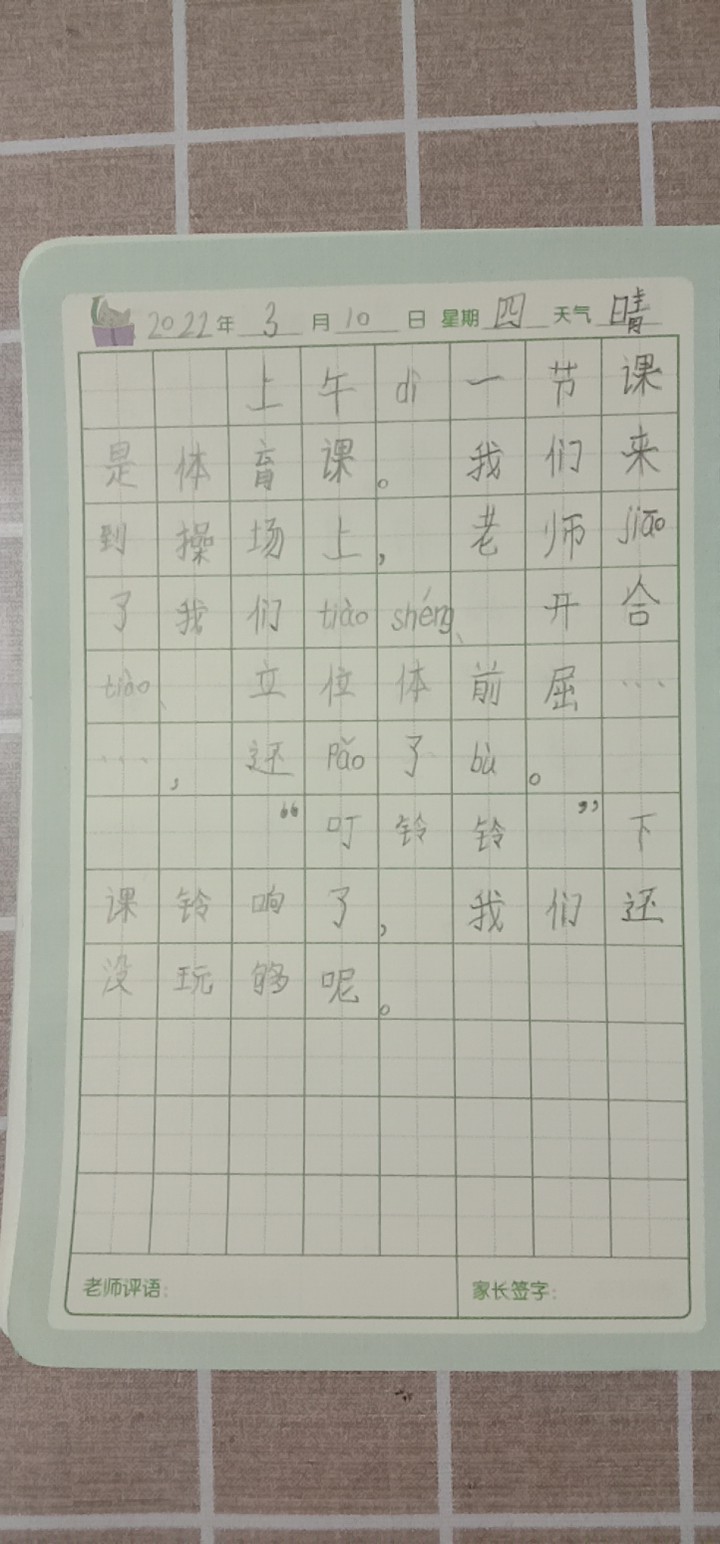 2022年 3月10日 星期四 天气晴
上午dì一节课
是体育课。我们来
到操场上,老师jiāo
了我们tiào shéng、开合
tiào、立位体前屈…
…,还Pǎo了bù。
“叮铃铃”下
课铃响了,我们还
没玩够呢。
老师评语: 家长签字: